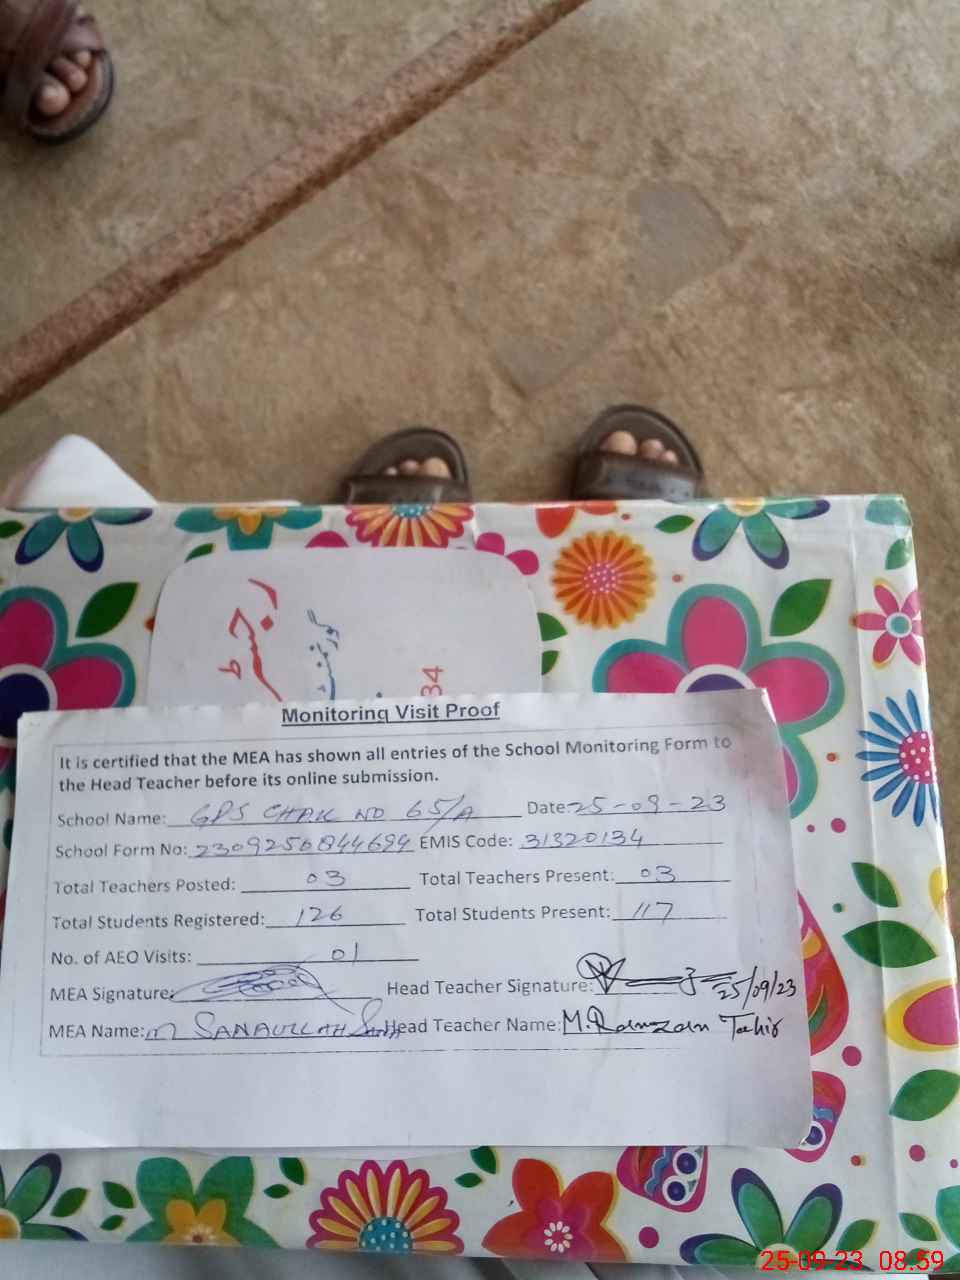 رجسٹر
گورنمنٹ
34
Monitoring Visit Proof
It is certified that the MEA has shown all entries of the School Monitoring Form to
the Head Teacher before its online submission.
School Name: GPS CHAK NO 65/A Date: 25-09-23
School Form No: 2309250844694 EMIS Code: 31320134
Total Teachers Posted: 03 Total Teachers Present: 03
Total Students Registered: 126 Total Students Present: 117
No. of AEO Visits: 01
MEA Signature: Head Teacher Signature: 25/09/23
MEA Name: M SANAULLAH Head Teacher Name: M. Ramzan Tahir
25-09-23 08.59